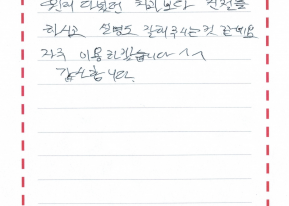 원래 다녔던 치과보다 친절
하시고 설명도 잘해주시는것 같아요
자주 이용하겠습니다 ^^
감사합니다.